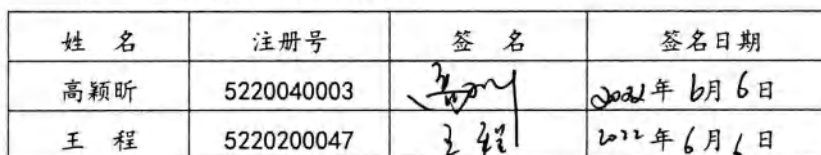 姓 名 注册号 签 名 签名日期
高颖昕 5220040003 2022年 6月 6日
王 程 5220200047 王程 2022年 6月 6日